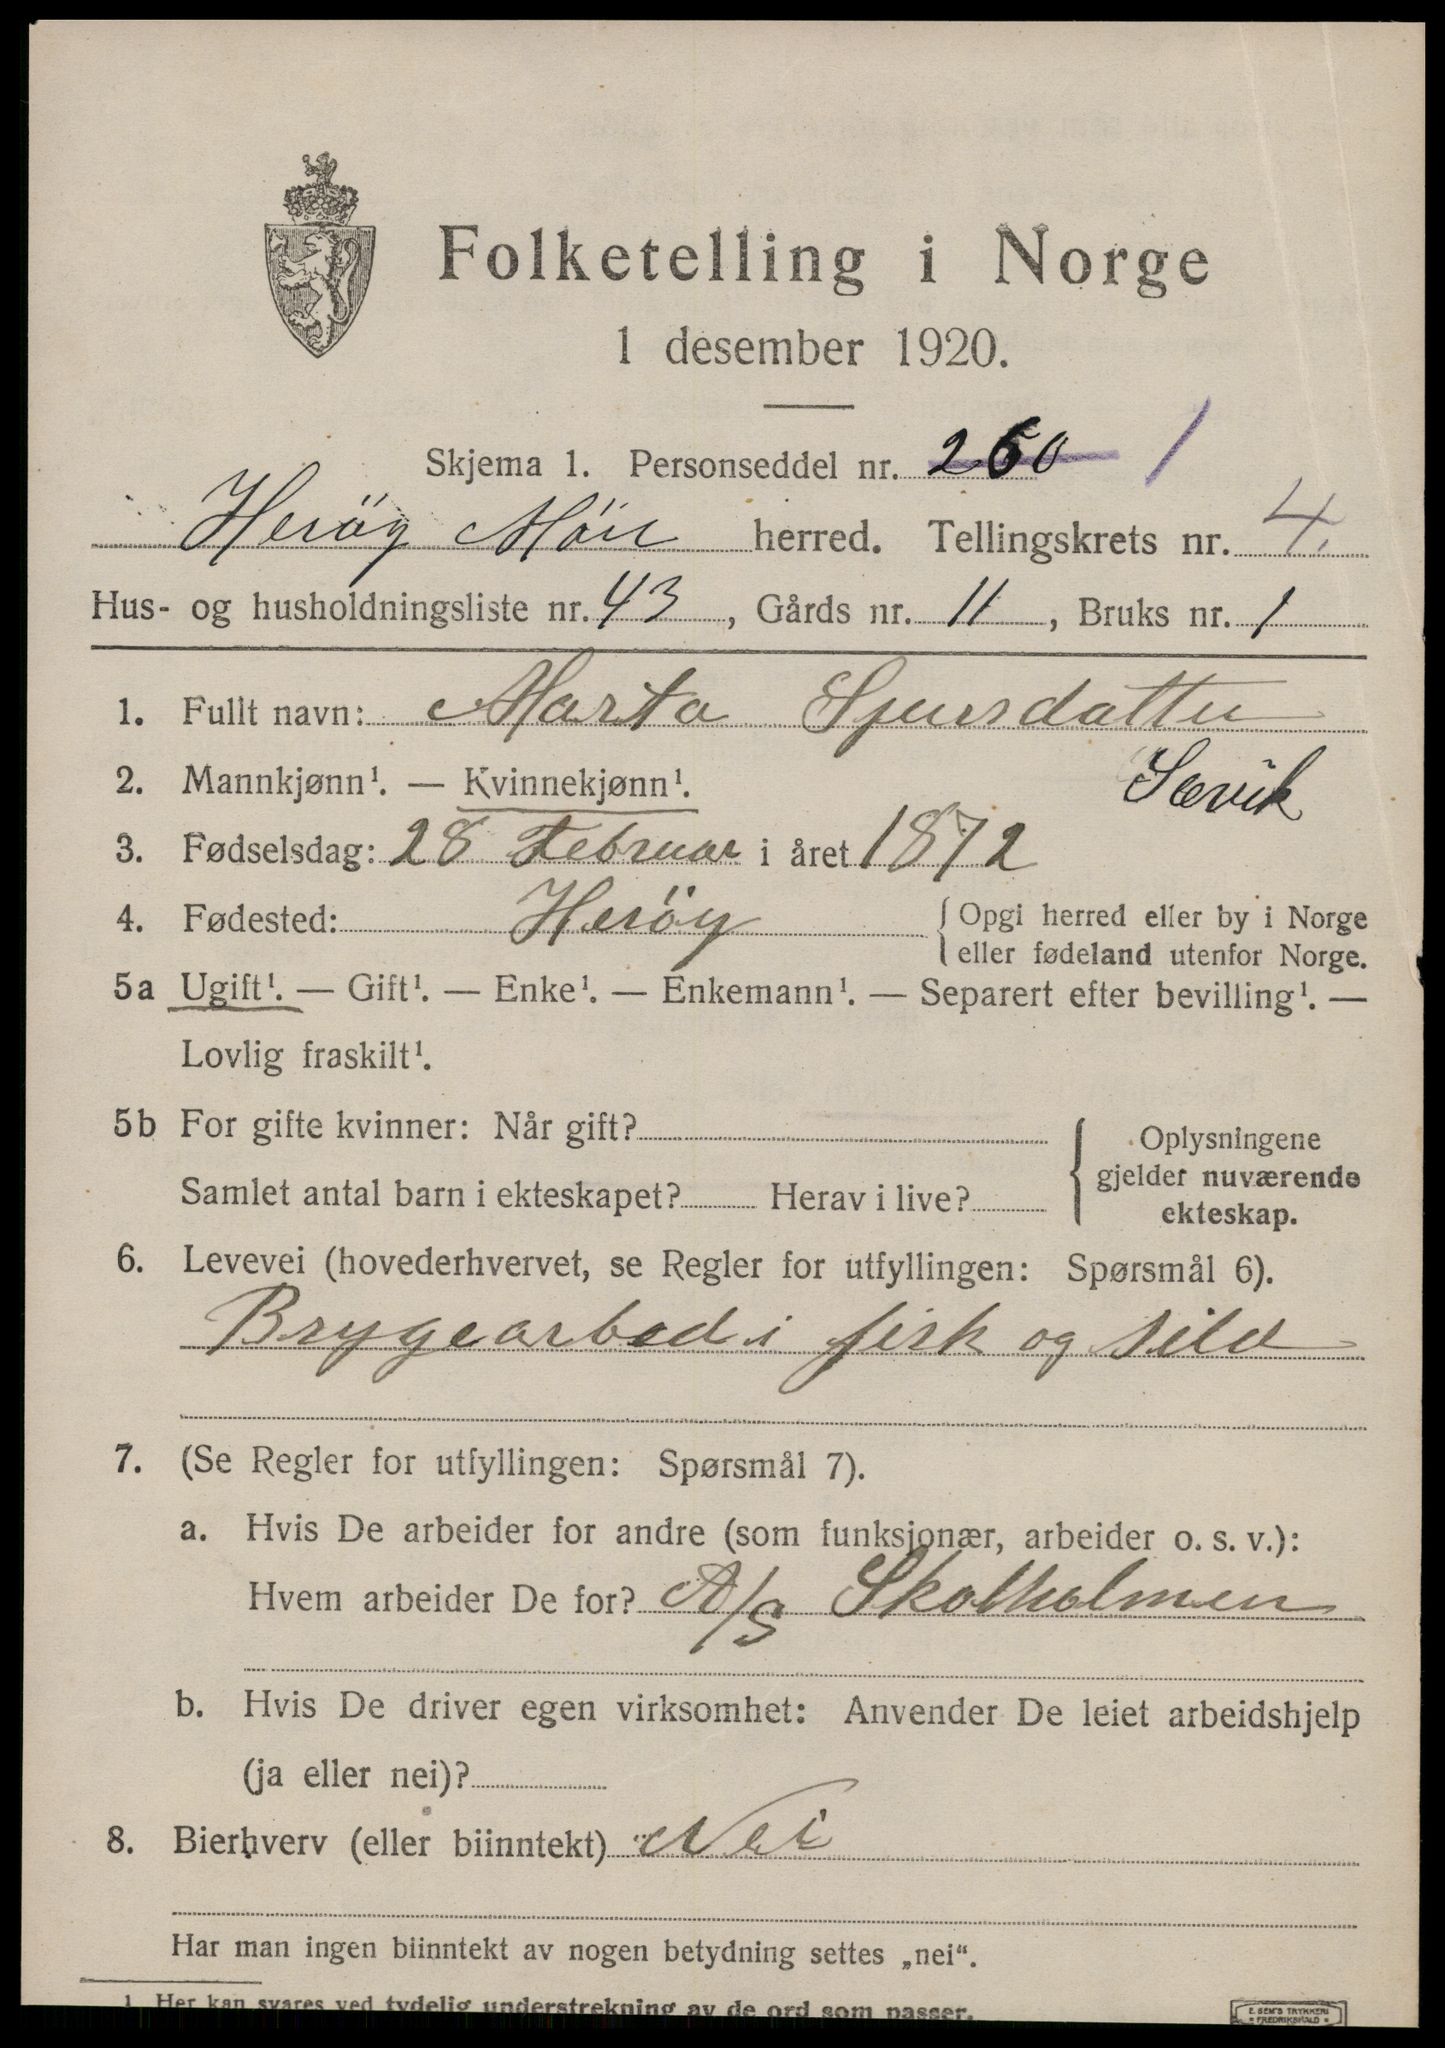 Folketelling i Norge
1 desember 1920.
Skjema 1. Personseddel nr. 260 1
Herøy Möre herred. Tellingskrets nr. 4.
Hus- og husholdningsliste nr. 43, Gårds nr. 11, Bruks nr. 1
1. Fullt navn: Marta Sjursdatter
Sævik
2. Mannkjønn¹. — Kvinnekjønn¹.
3. Fødselsdag: 28 Februar i året 1872
4. Fødested: Heröy { Opgi herred eller by i Norge
eller fødeland utenfor Norge.
5a Ugift¹. — Gift¹. — Enke¹. — Enkemann¹. — Separert efter bevilling¹. —
Lovlig fraskilt¹.
5b For gifte kvinner: Når gift? { Oplysningene
gjelder nuværende
Samlet antal barn i ekteskapet? Herav i live?
ekteskap.
6. Levevei (hovederhvervet, se Regler for utfyllingen: Spørsmål 6).
Brygearbed i fisk og sild
7. (Se Regler for utfyllingen: Spørsmål 7).
a. Hvis De arbeider for andre (som funksjonær, arbeider o. s. v.):
Hvem arbeider De for? A/S Skolholmen
b. Hvis De driver egen virksomhet: Anvender De leiet arbeidshjelp
(ja eller nei)?
8. Bierhverv (eller biinntekt) Nei
Har man ingen biinntekt av nogen betydning settes „nei“.
1. Her kan svares ved tydelig understrekning av de ord som passer.
E. SEM'S TRYKKERI
FREDRIKSHALD